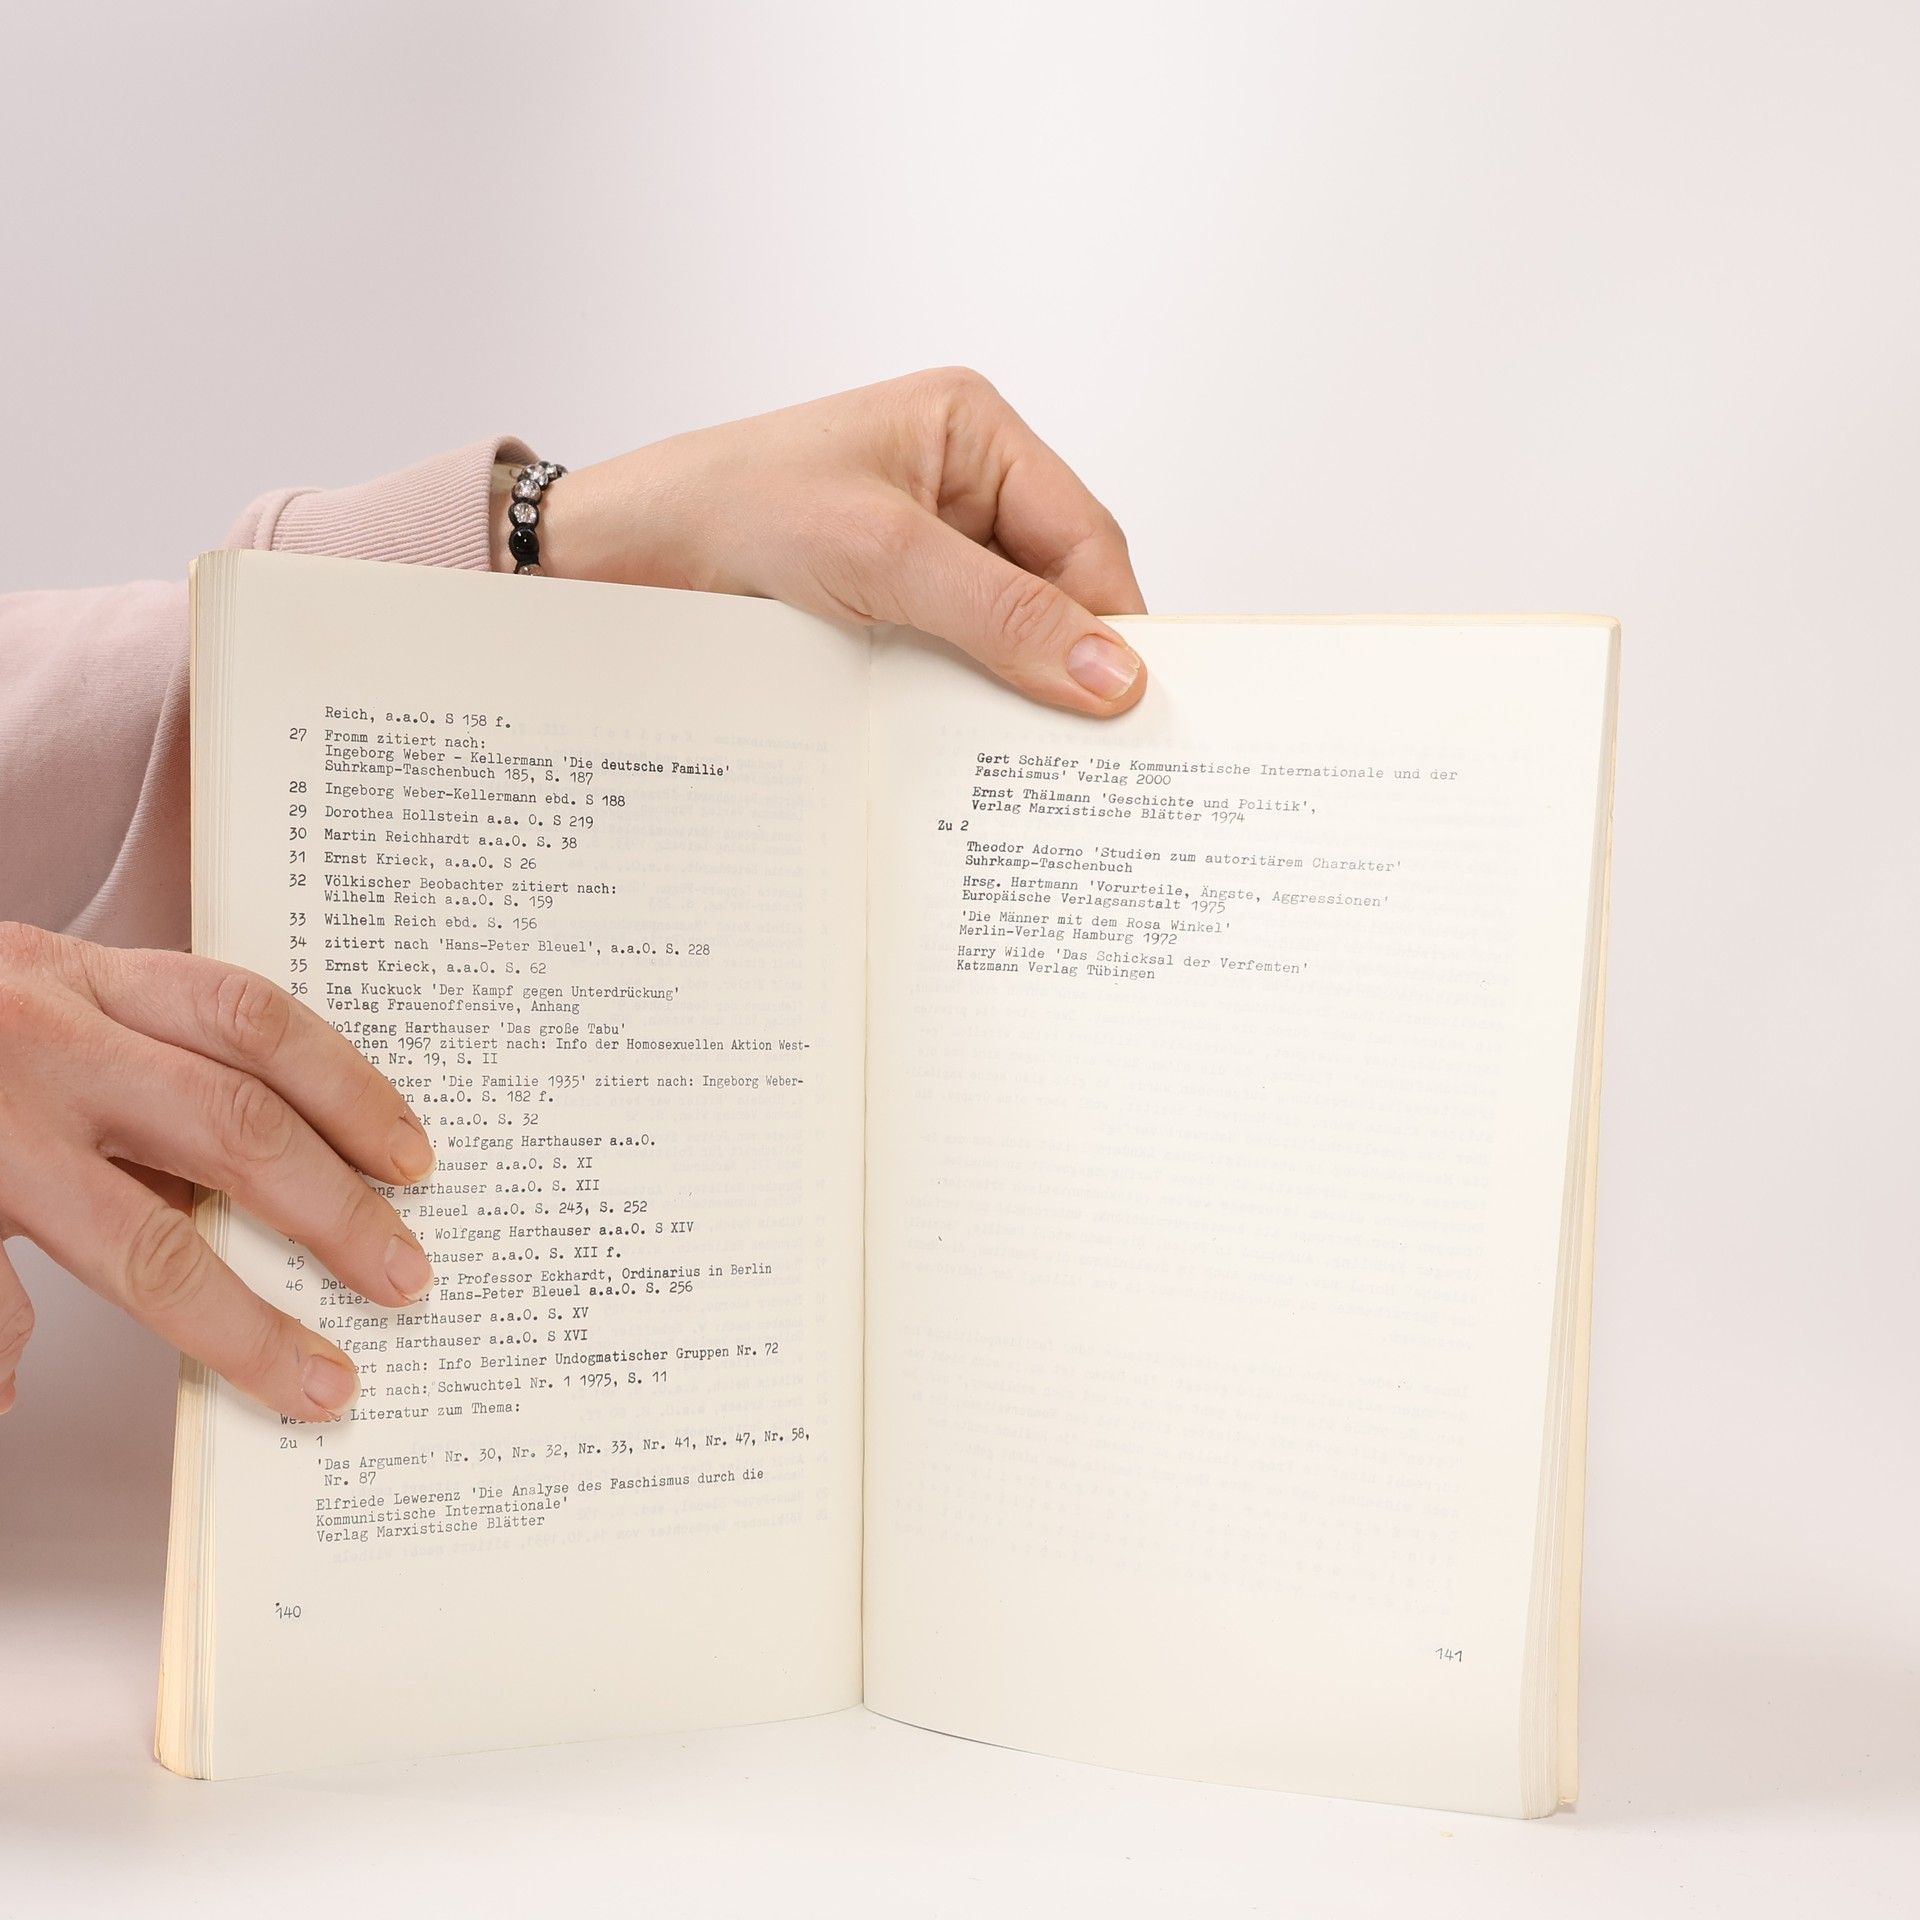 Reich, a.a.O. S 158 f.
27 Fromm zitiert nach:
Ingeborg Weber - Kellermann 'Die deutsche Familie'
Suhrkamp-Taschenbuch 185, S. 187
28 Ingeborg Weber-Kellermann ebd. S 188
29 Dorothea Hollstein a.a. O. S 219
30 Martin Reichhardt a.a.O. S. 38
31 Ernst Krieck, a.a.O. S 26
32 Völkischer Beobachter zitiert nach:
Wilhelm Reich a.a.O. S. 159
33 Wilhelm Reich ebd. S. 156
34 zitiert nach 'Hans-Peter Bleuel', a.a.O. S. 228
35 Ernst Krieck, a.a.O. S. 62
36 Ina Kuckuck 'Der Kampf gegen Unterdrückung'
Verlag Frauenoffensive, Anhang
Wolfgang Harthauser 'Das große Tabu'
1967 zitiert nach: Info der Homosexuellen Aktion West-
Nr. 19, S. II
'Die Familie 1935' zitiert nach: Ingeborg Weber-
a.a.O. S. 182 f.
a.a.O. S. 32
: Wolfgang Harthauser a.a.O.
a.a.O. S. XI
Harthauser a.a.O. S. XII
Bleuel a.a.O. S. 243, S. 252
: Wolfgang Harthauser a.a.O. S XIV
45 a.a.O. S. XII f.
46 Professor Eckhardt, Ordinarius in Berlin
: Hans-Peter Bleuel a.a.O. S. 256
Wolfgang Harthauser a.a.O. S. XV
Harthauser a.a.O. S XVI
nach: Info Berliner Undogmatischer Gruppen Nr. 72
nach: Schwuchtel Nr. 1 1975, S. 11
Literatur zum Thema:
Zu 1
'Das Argument' Nr. 30, Nr. 32, Nr. 33, Nr. 41, Nr. 47, Nr. 58,
Nr. 87
Elfriede Lewerenz 'Die Analyse des Faschismus durch die
Kommunistische Internationale'
Verlag Marxistische Blätter
140
Gert Schäfer 'Die Kommunistische Internationale und der
Faschismus' Verlag 2000
Ernst Thälmann 'Geschichte und Politik',
Verlag Marxistische Blätter 1974
Zu 2
Theodor Adorno 'Studien zum autoritärem Charakter'
Suhrkamp-Taschenbuch
Hrsg. Hartmann 'Vorurteile, Ängste, Aggressionen'
Europäische Verlagsanstalt 1975
'Die Männer mit dem Rosa Winkel'
Merlin-Verlag Hamburg 1972
Harry Wilde 'Das Schicksal der Verfemten'
Katzmann Verlag Tübingen
141